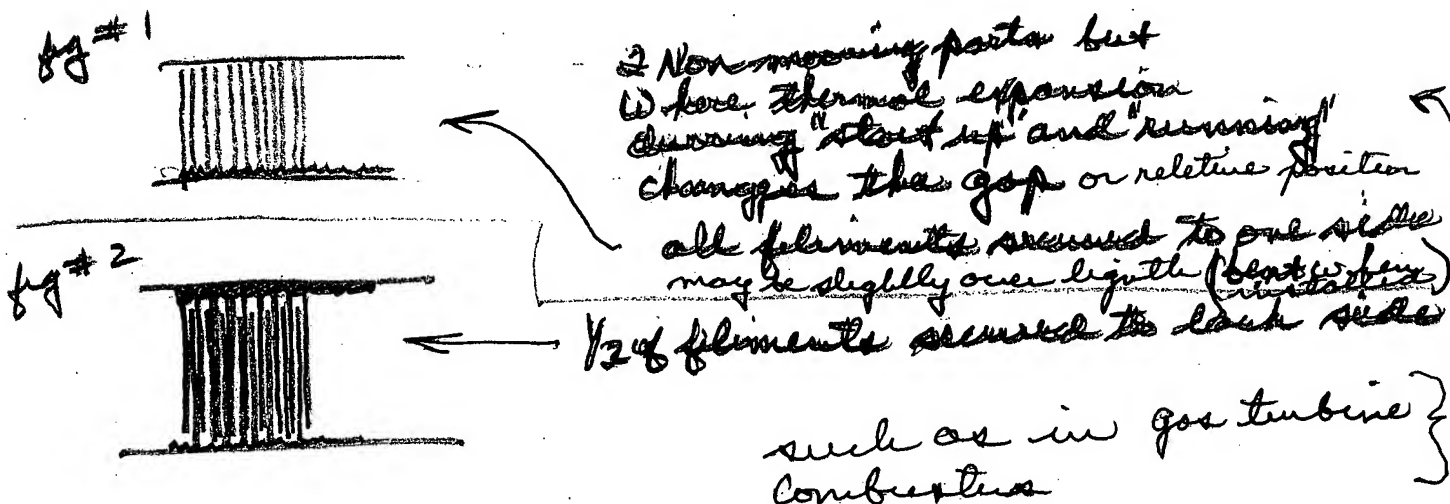 fig # 1
2 Non-mooving parts but
(1) here, thermal expansion
durring "start up" and "running"
changges the gap or reletive position
all filiments secured to one side
may be slightly over length (bent when installed)
fig # 2
1/2 of filiments secured to each side
such as in gas turbine
combustors